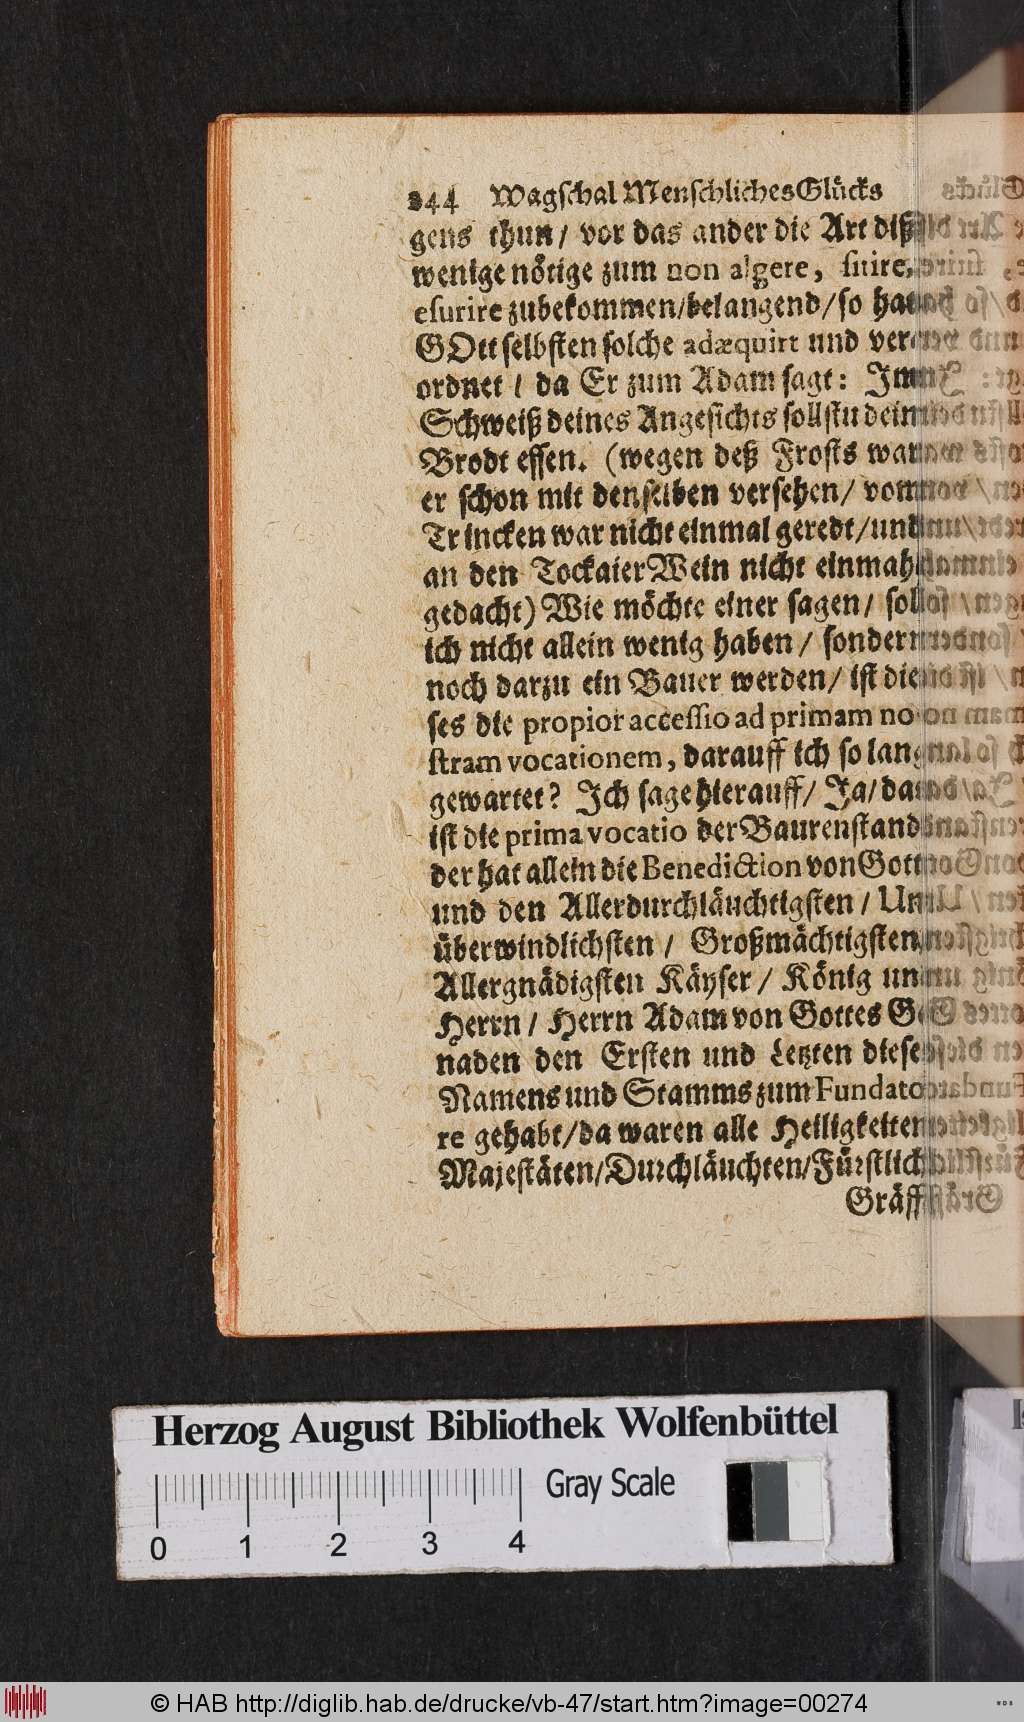 244 Wagschal Menschliches Glücks
gens thun / vor das ander die Art diß
wenige nötige zum non algere, sitire,
esurire zubekommen / belangend / so hat
GOtt selbsten solche adæquirt und ver-
ordnet / da Er zum Adam sagt: Im
Schweiß deines Angesichts sollstu dein
Brodt essen. (wegen deß Frosts war
er schon mit denselben versehen / vom
Trincken war nicht einmal geredt / und
an den Tockaier Wein nicht einmahl
gedacht) Wie möchte einer sagen / soll
ich nicht allein wenig haben / sondern
noch darzu ein Bauer werden / ist die-
ses die propior accessio ad primam no-
stram vocationem, darauff ich so lang
gewartet? Ich sage hierauff / Ja / da
ist die prima vocatio der Baurenstand
der hat allein die Benediction von Gott
und den Allerdurchläuchtigsten / Un-
überwindlichsten / Großmächtigsten
Allergnädigsten Käyser / König und
Herrn / Herrn Adam von Gottes G-
naden den Ersten und Letzten dieses
Namens und Stamms zum Fundato-
re gehabt / da waren alle Heiligkeiten
Majestäten / Durchläuchten / Fürstlich
Gräff
Herzog August Bibliothek Wolfenbüttel
0 1 2 3 4
Gray Scale
© HAB http://diglib.hab.de/drucke/vb-47/start.htm?image=00274